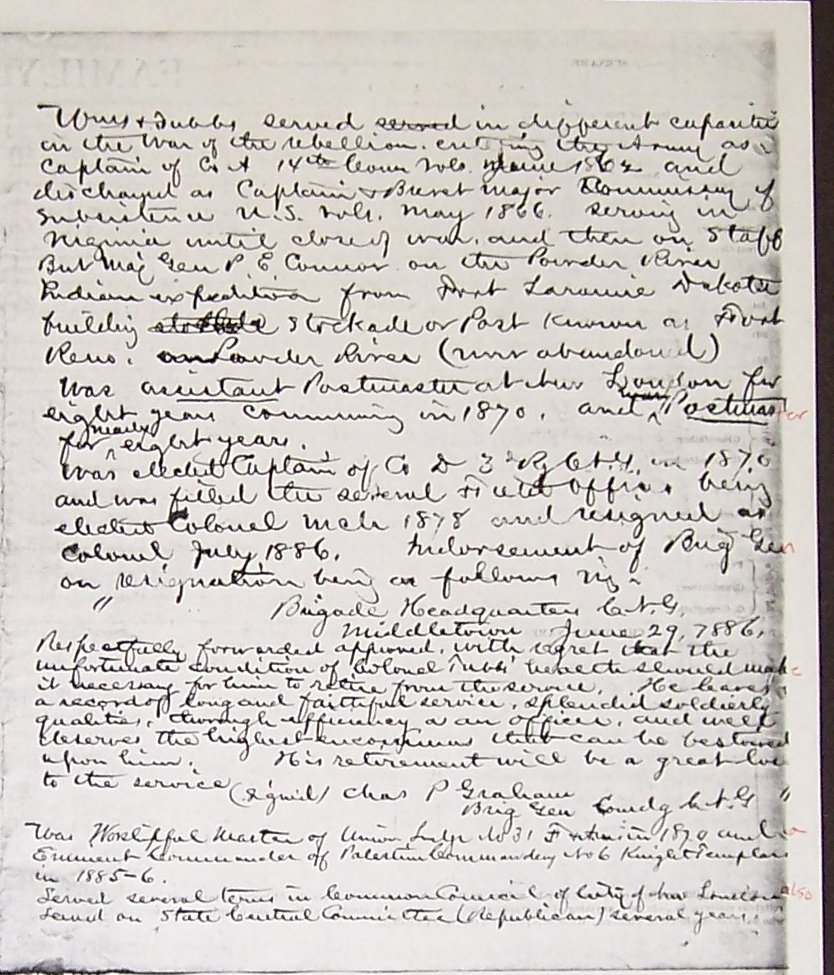 Wm H Tubbs served served in different capacities
in the War of the rebellion. entering the Army as
Captain of Co A 14th Conn Vols. June 1862 and
discharged as Captain & Brevet Major Commissary of
Subsistence U.S. Vols. May 1866. serving in
Virginia until close of war. and then on Staff
Bvt Maj Gen P E Connor on the Powder River
Indian expedition from Fort Laramie Dakota
building Stockade or Post Known as Fort
Reno. on Powder River (now abandoned)
Was assistant Postmaster at New London for
eight years commencing in 1870. and Postmaster
for nearly eight years.
Was elected Captain of Co D 3d Rg C.N.G. in 1870
and was filled the several Field Offices being
elected Colonel Mch 1878 and resigned as
Colonel July 1886. Indorsement of Brig Gen
on resignation being as follows viz:
" Brigade Headquarters C.N.G.
Middletown June 29, 1886.
Respectfully forwarded approved. with regret that the
unfortunate condition of Colonel Tubbs' health should make
it necessary for him to retire from the service. He leaves
a record of long and faithful service, splendid soldierly
qualities, thorough efficiency as an officer, and well
deserves the highest encomiums that can be bestowed
upon him. His retirement will be a great loss
to the service (signed) Chas P Graham
Brig Gen Comdg C.N.G "
Was Worshipful Master of Union Lodge No 31 F & A in 1870 and
Eminent Commander of Palestine Commandery No 6 Knights Templars
in 1885-6.
Served several terms in Common Council of City of New London also
Served on State Central Committee (Republican) several years.